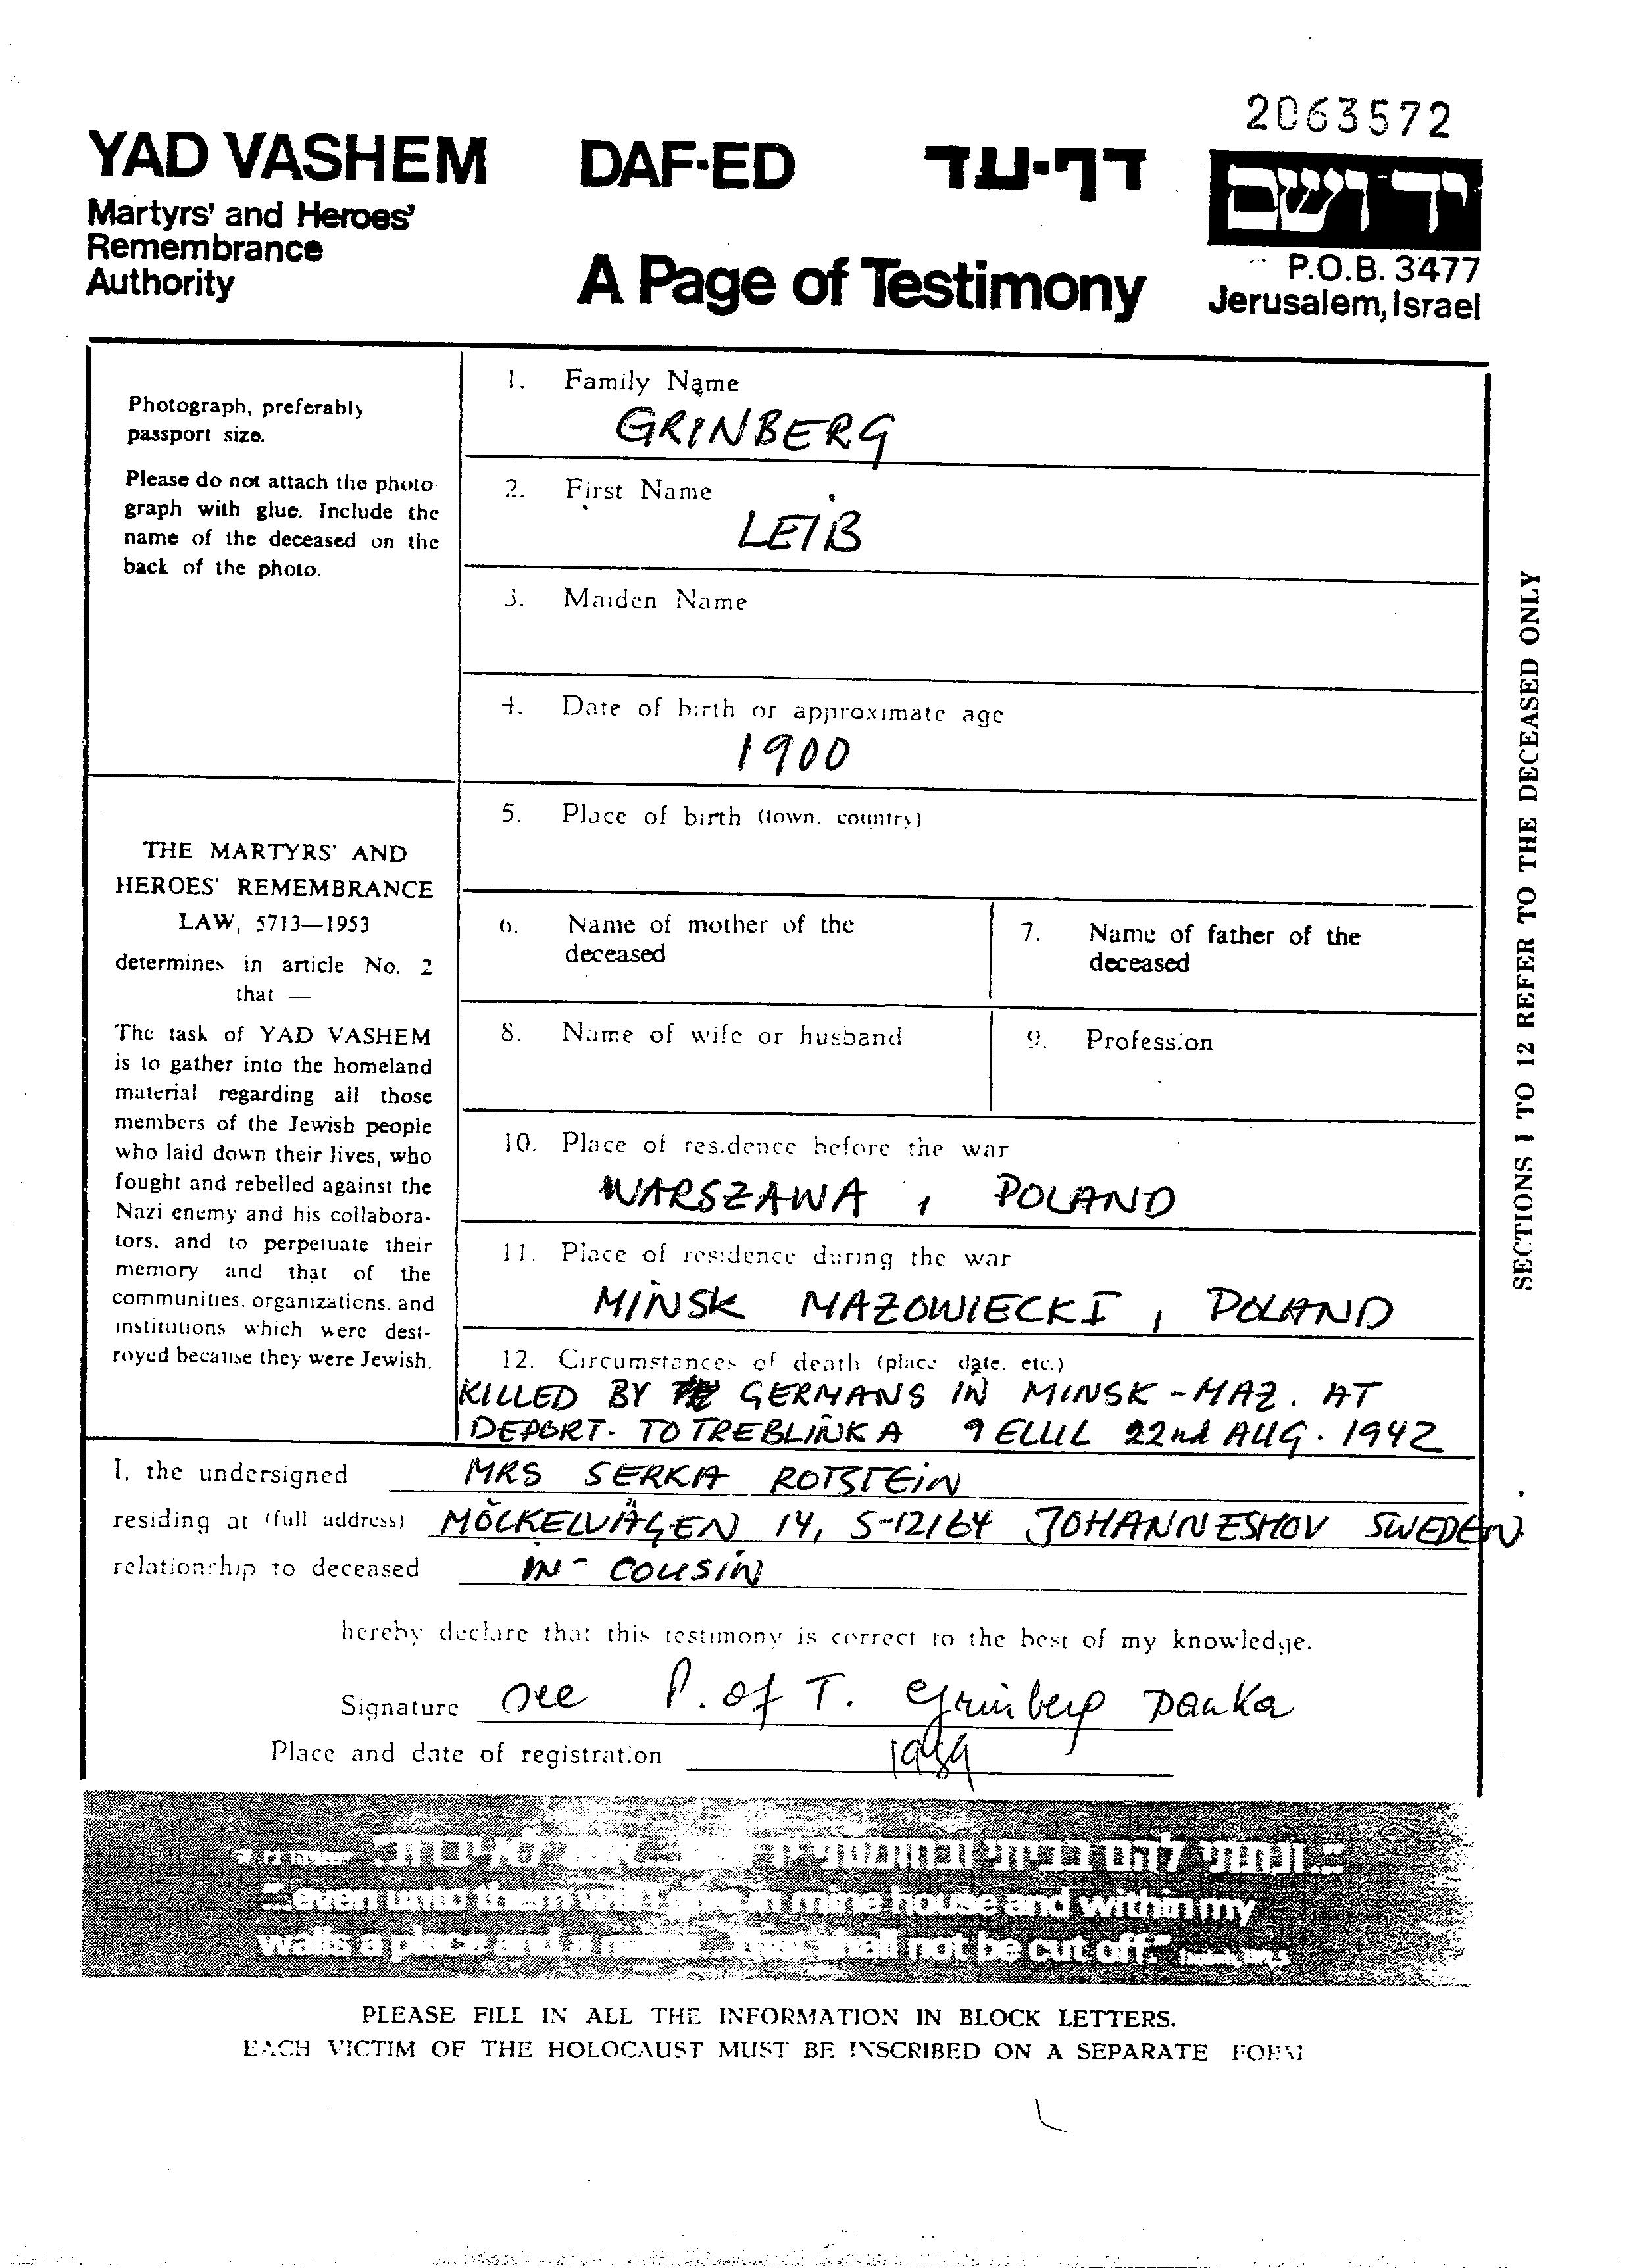 2063572
YAD VASHEM DAF-ED דף-עד יד ושם
Martyrs' and Heroes'
Remembrance
Authority
A Page of Testimony
P.O.B. 3477
Jerusalem, Israel
Photograph, preferably
passport size.
Please do not attach the photo
graph with glue. Include the
name of the deceased on the
back of the photo.
THE MARTYRS' AND
HEROES' REMEMBRANCE
LAW, 5713—1953
determines in article No. 2
that —
The task of YAD VASHEM
is to gather into the homeland
material regarding all those
members of the Jewish people
who laid down their lives, who
fought and rebelled against the
Nazi enemy and his collabora-
tors, and to perpetuate their
memory and that of the
communities, organizations, and
institutions which were dest-
royed because they were Jewish.
1. Family Name
GRINBERG
2. First Name
LEIB
3. Maiden Name
4. Date of birth or approximate age
1900
5. Place of birth (town, country)
6. Name of mother of the
deceased
7. Name of father of the
deceased
8. Name of wife or husband
9. Profession
10. Place of residence before the war
WARSZAWA, POLAND
11. Place of residence during the war
MINSK MAZOWIECKI, POLAND
12. Circumstances of death (place, date, etc.)
KILLED BY GERMANS IN MINSK-MAZ. AT
DEPORT. TO TREBLINKA 9 ELUL 22nd AUG. 1942
SECTIONS 1 TO 12 REFER TO THE DECEASED ONLY
I, the undersigned MRS SERKA ROTSTEIN
residing at (full address) MÖCKELVÄGEN 14, S-12164 JOHANNESHOV SWEDEN
relationship to deceased IN- COUSIN
hereby declare that this testimony is correct to the best of my knowledge.
Signature see P. of T. Grinberg Danka
Place and date of registration 1989
"...ונתתי להם בביתי ובחומותי יד ושם... אשר לא יכרת"
"...even unto them will I give in mine house and within my
walls a place and a name... that shall not be cut off."
PLEASE FILL IN ALL THE INFORMATION IN BLOCK LETTERS.
EACH VICTIM OF THE HOLOCAUST MUST BE INSCRIBED ON A SEPARATE FORM